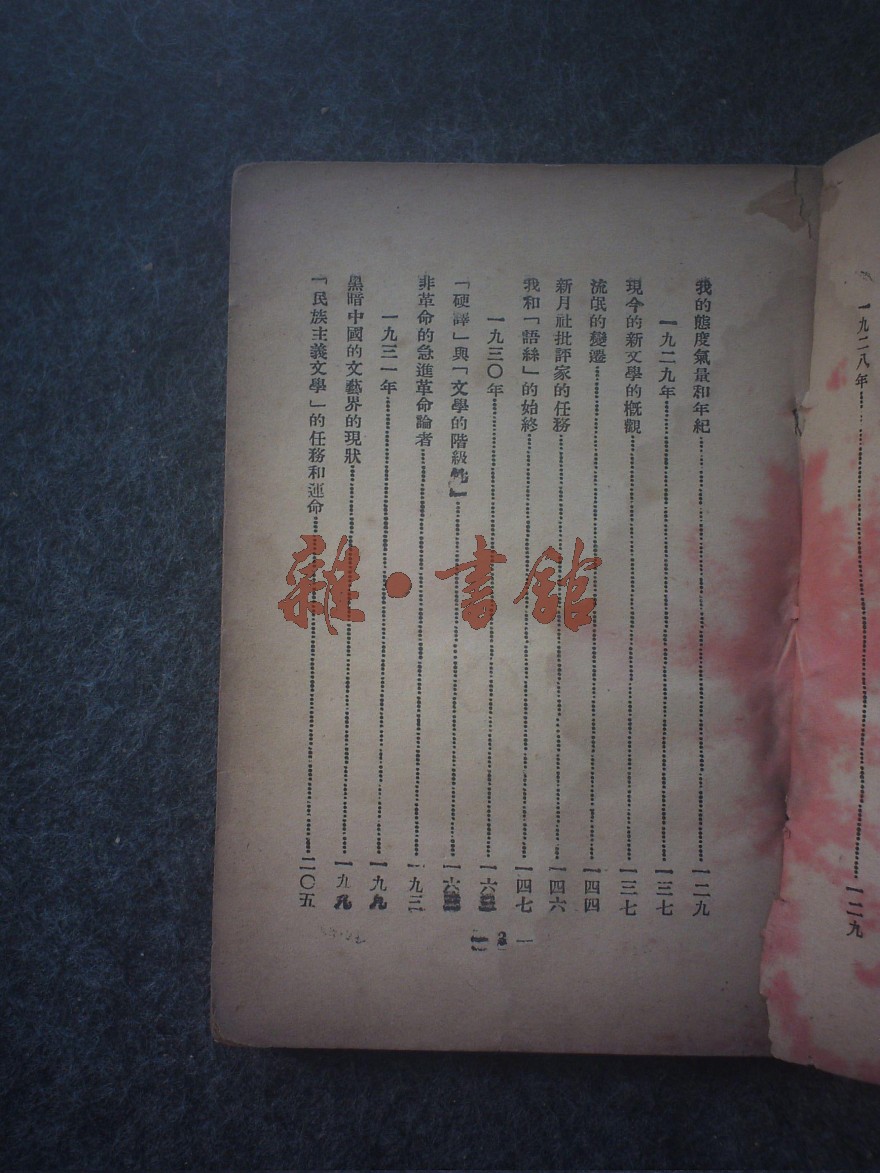 一九二八年……一二九
我的態度氣量和年紀……一二九
一九二九年……一三七
現今的新文學的概觀……一三七
流氓的變遷……一四四
新月社批評家的任務……一四六
我和「語絲」的始終……一四七
一九三〇年……一六三
「硬譯」與「文學的階級性」……一六三
非革命的急進革命論者……一九三
一九三一年……一九九
黑暗中國的文藝界的現狀……一九九
「民族主義文學」的任務和運命……二〇五
雜·書館